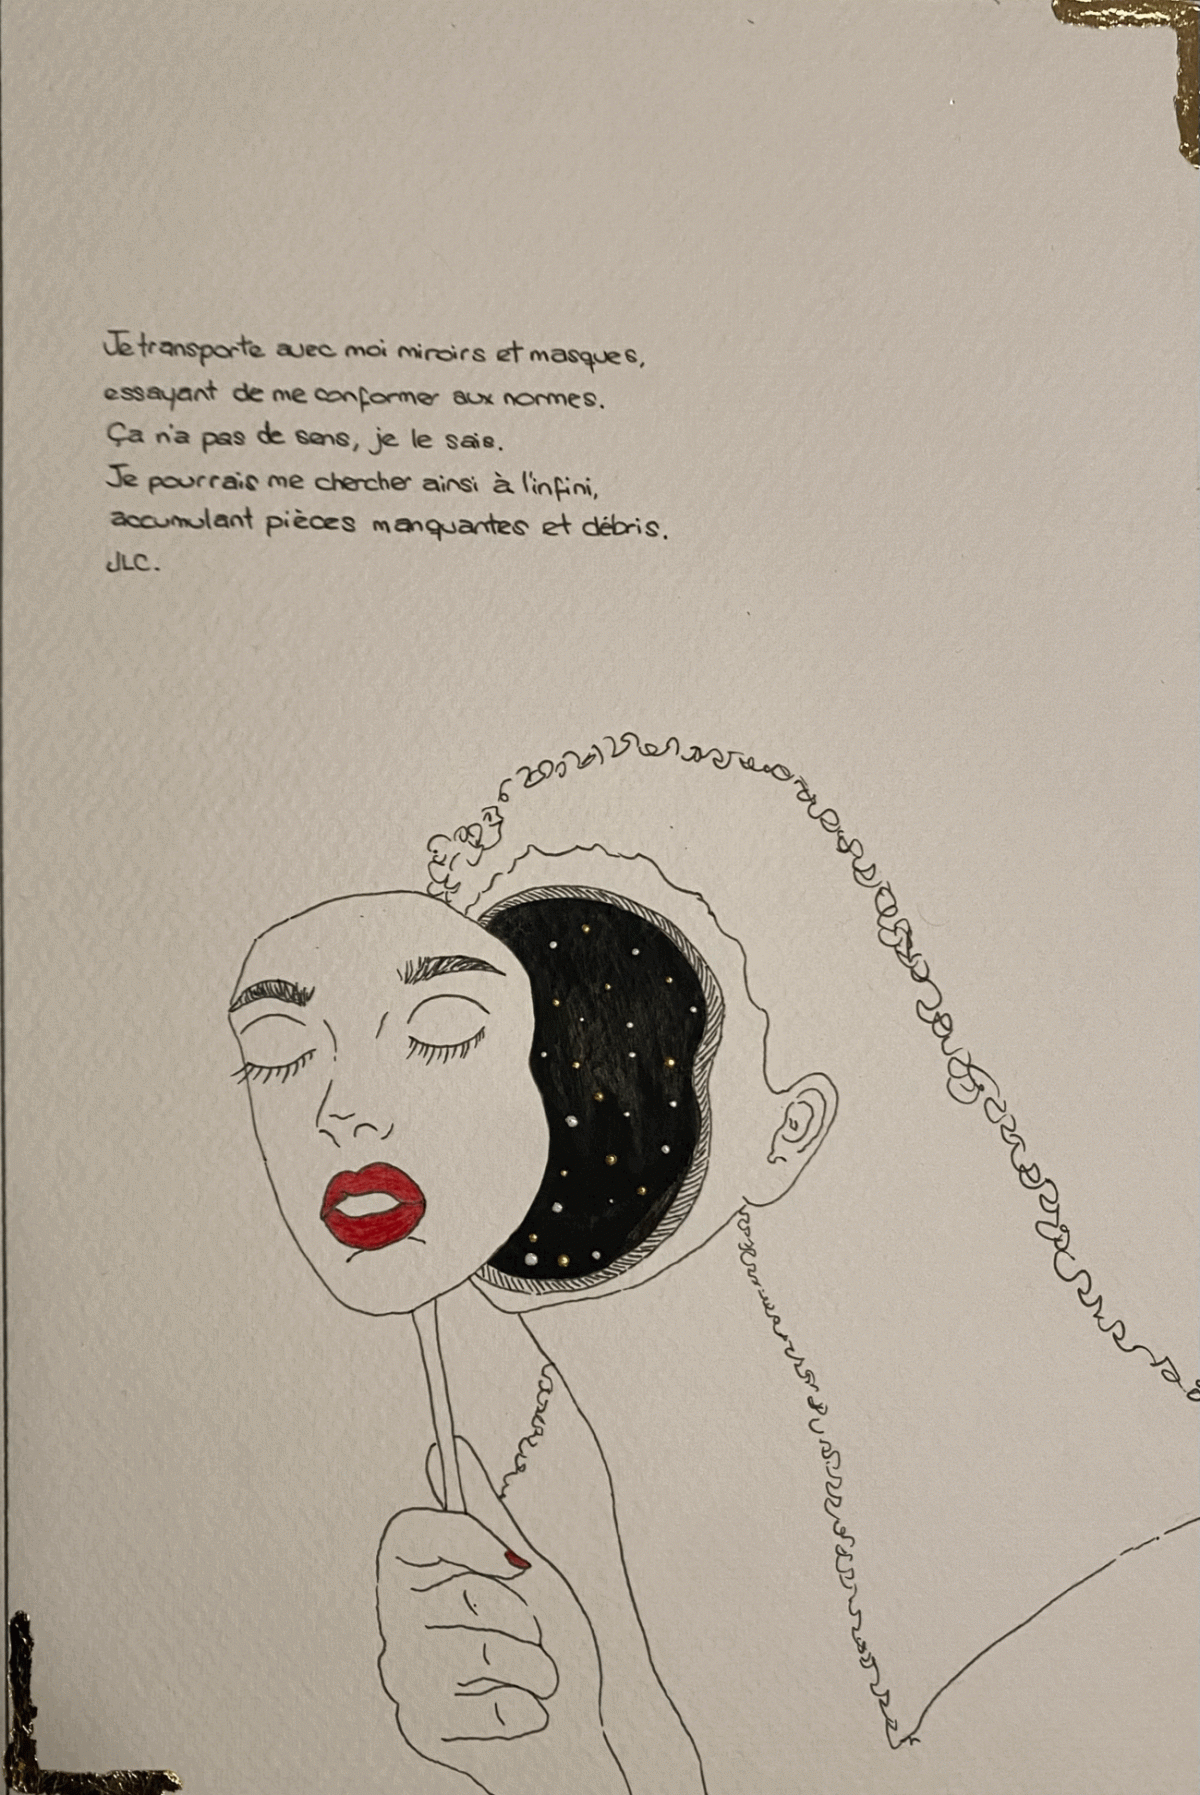 Je transporte avec moi miroirs et masques,
essayant de me conformer aux normes.
Ça n'a pas de sens, je le sais.
Je pourrais me chercher ainsi à l'infini,
accumulant pièces manquantes et débris.
JLC.